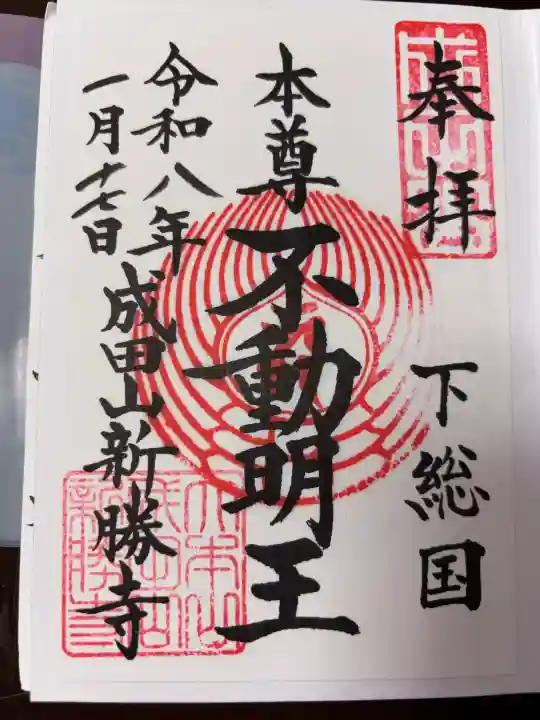 奉拝
下総国
本尊不動明王
令和八年
一月十七日
成田山新勝寺